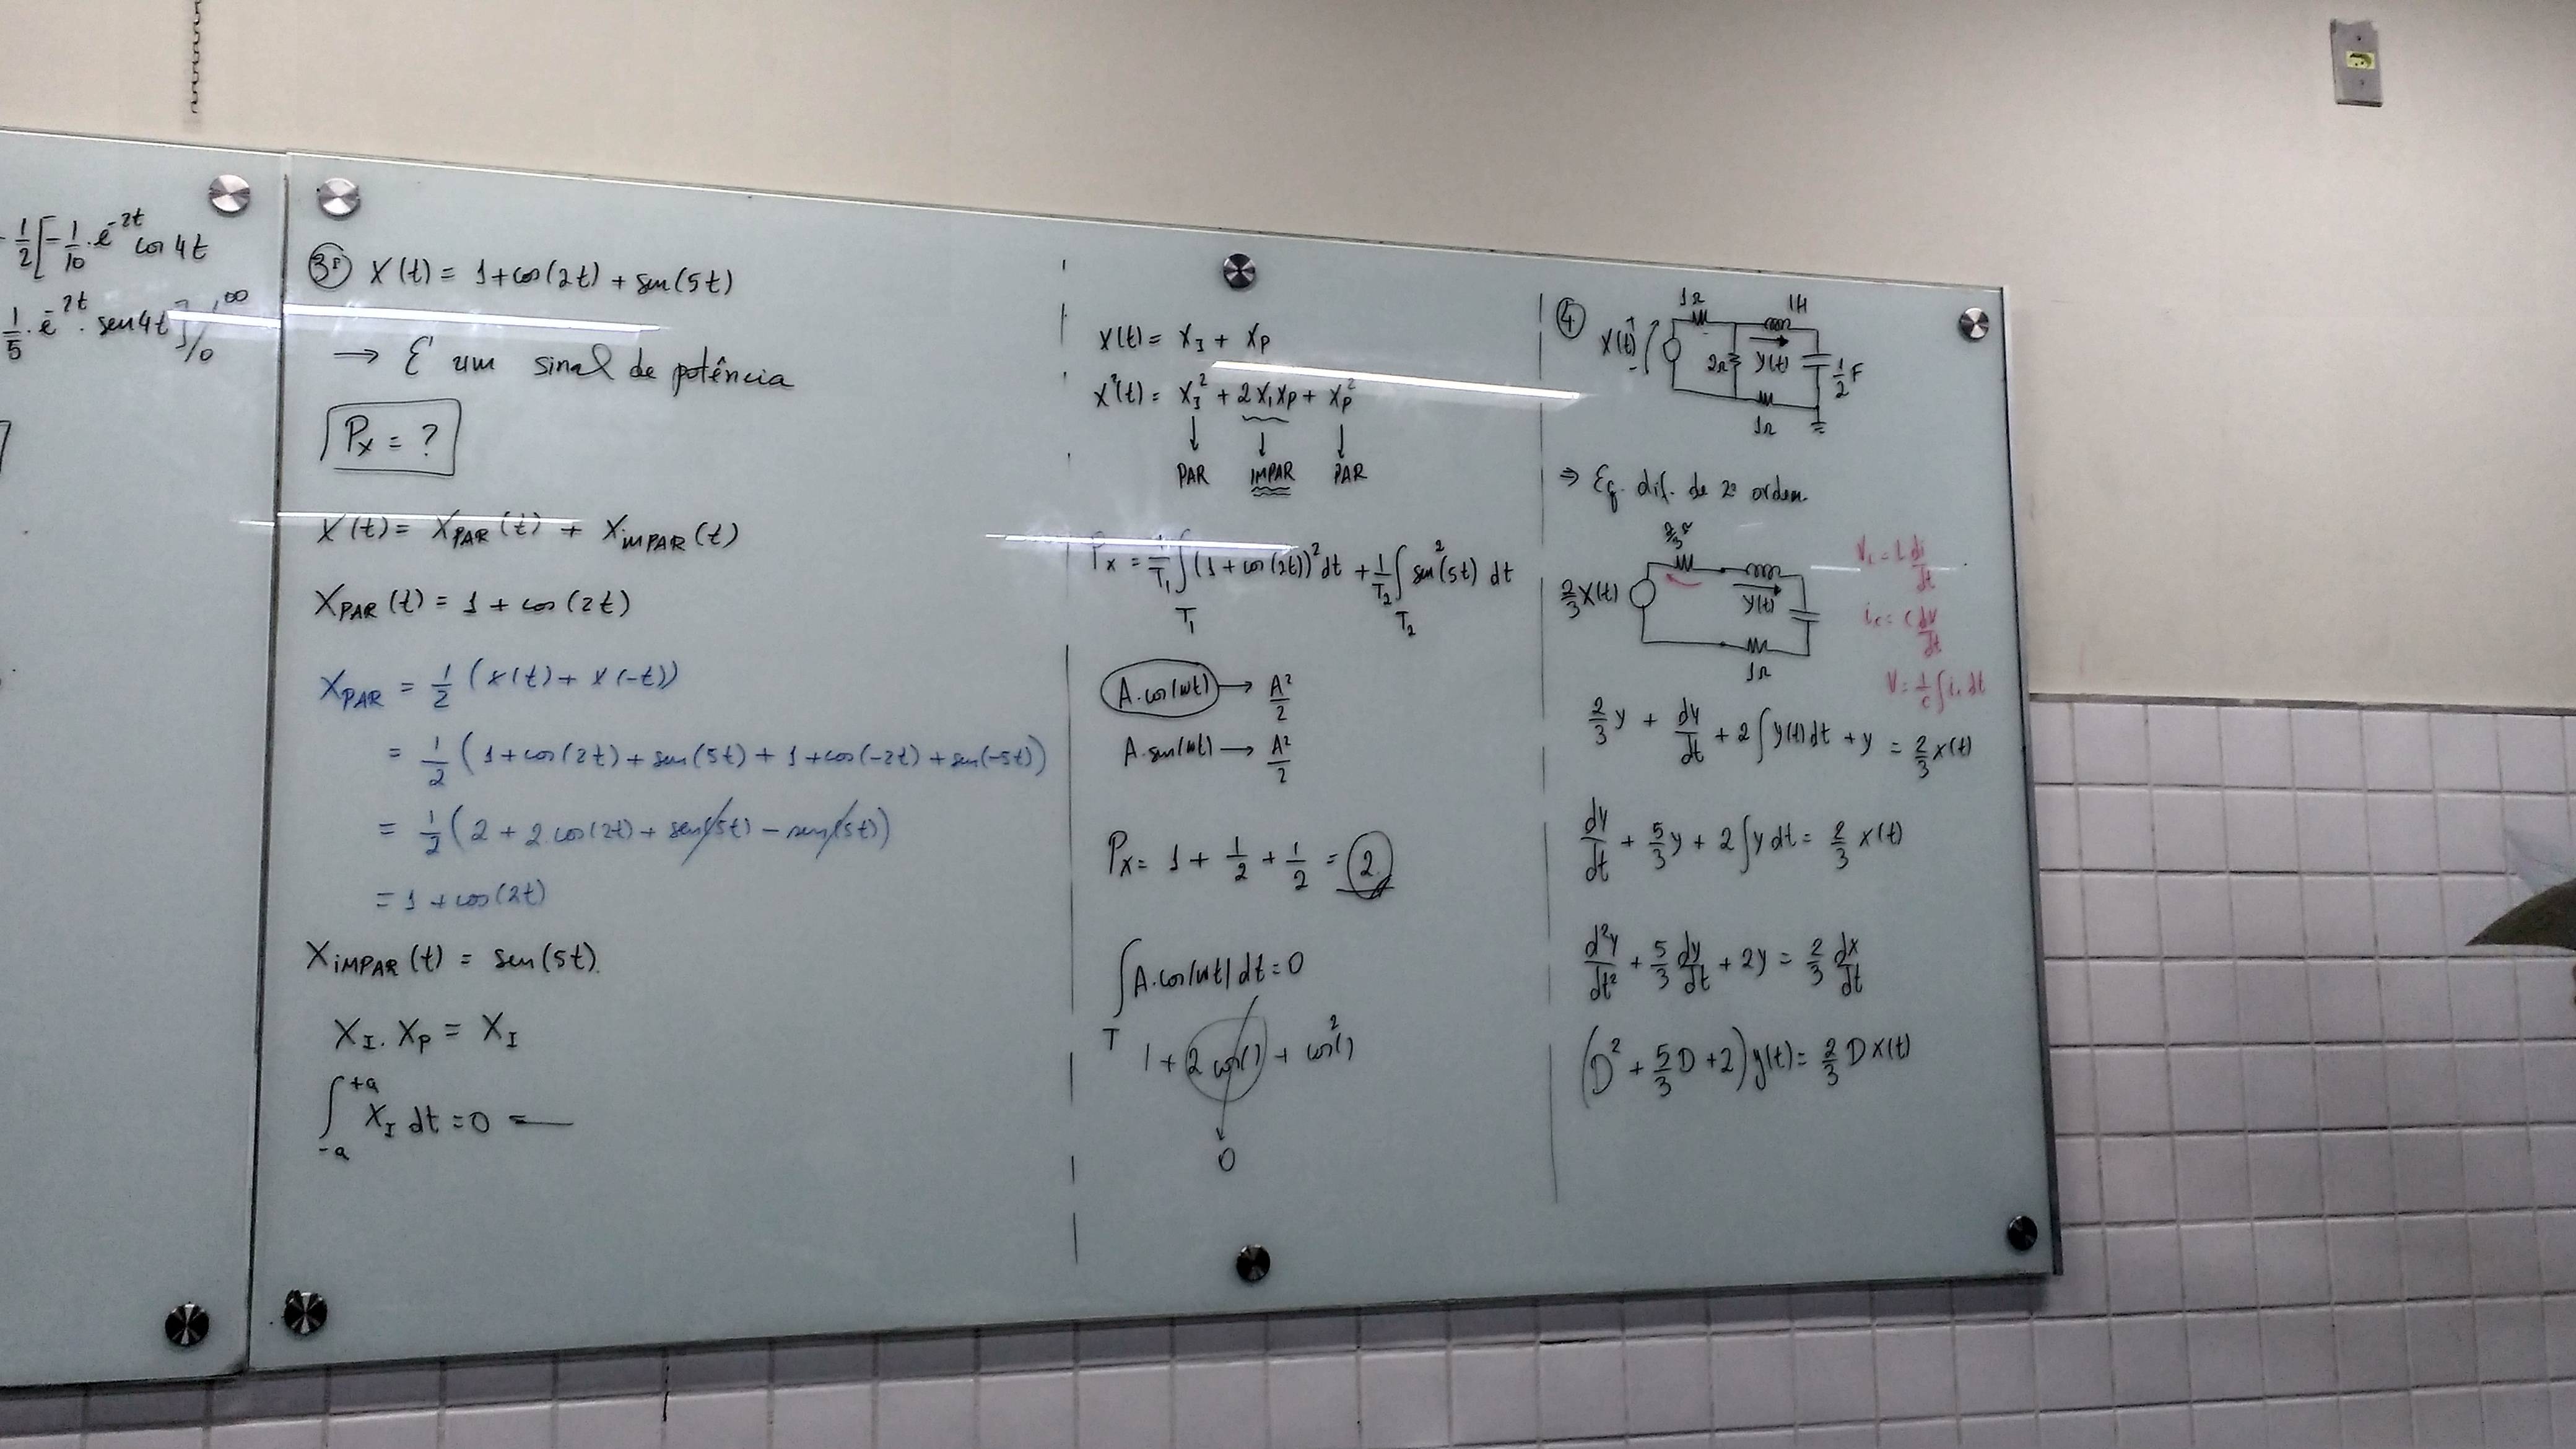 1/2 [-1/10 . e^-2t cos 4t
1/5 . e^-2t . sen 4t ] /0 ^∞
3ª) x(t) = 1 + cos(2t) + sen(5t)
→ É um sinal de potência
Px = ?
x(t) = xPAR(t) + xiMPAR(t)
xPAR(t) = 1 + cos(2t)
xPAR = 1/2 (x(t) + x(-t))
= 1/2 (1 + cos(2t) + sen(5t) + 1 + cos(-2t) + sen(-5t))
= 1/2 (2 + 2 cos(2t) + sen(5t) - sen(5t))
= 1 + cos(2t)
xiMPAR(t) = sen(5t).
xI . xP = xI
∫_-a^+a xI dt = 0
x(t) = xI + xP
x²(t) = xI² + 2xIxP + xP²
↓ ↓ ↓
PAR IMPAR PAR
Px = 1/T1 ∫_T1 (1 + cos(2t))² dt + 1/T2 ∫_T2 sen²(5t) dt
A.cos(wt) → A²/2
A.sen(wt) → A²/2
Px = 1 + 1/2 + 1/2 = 2
∫_T A.cos(wt) dt = 0
1 + 2 cos() + cos²()
0
④
1Ω 1H
x(t) + - 2Ω y(t) 1/2 F
1Ω
⇒ Eq. dif. de 2ª ordem.
2/3 Ω
2/3 x(t) y(t)
1Ω
VL = L di/dt
ic = C dV/dt
V = 1/C ∫ ic dt
2/3 y + dy/dt + 2 ∫ y(t) dt + y = 2/3 x(t)
dy/dt + 5/3 y + 2 ∫ y dt = 2/3 x(t)
d²y/dt² + 5/3 dy/dt + 2y = 2/3 dx/dt
(D² + 5/3 D + 2) y(t) = 2/3 D x(t)